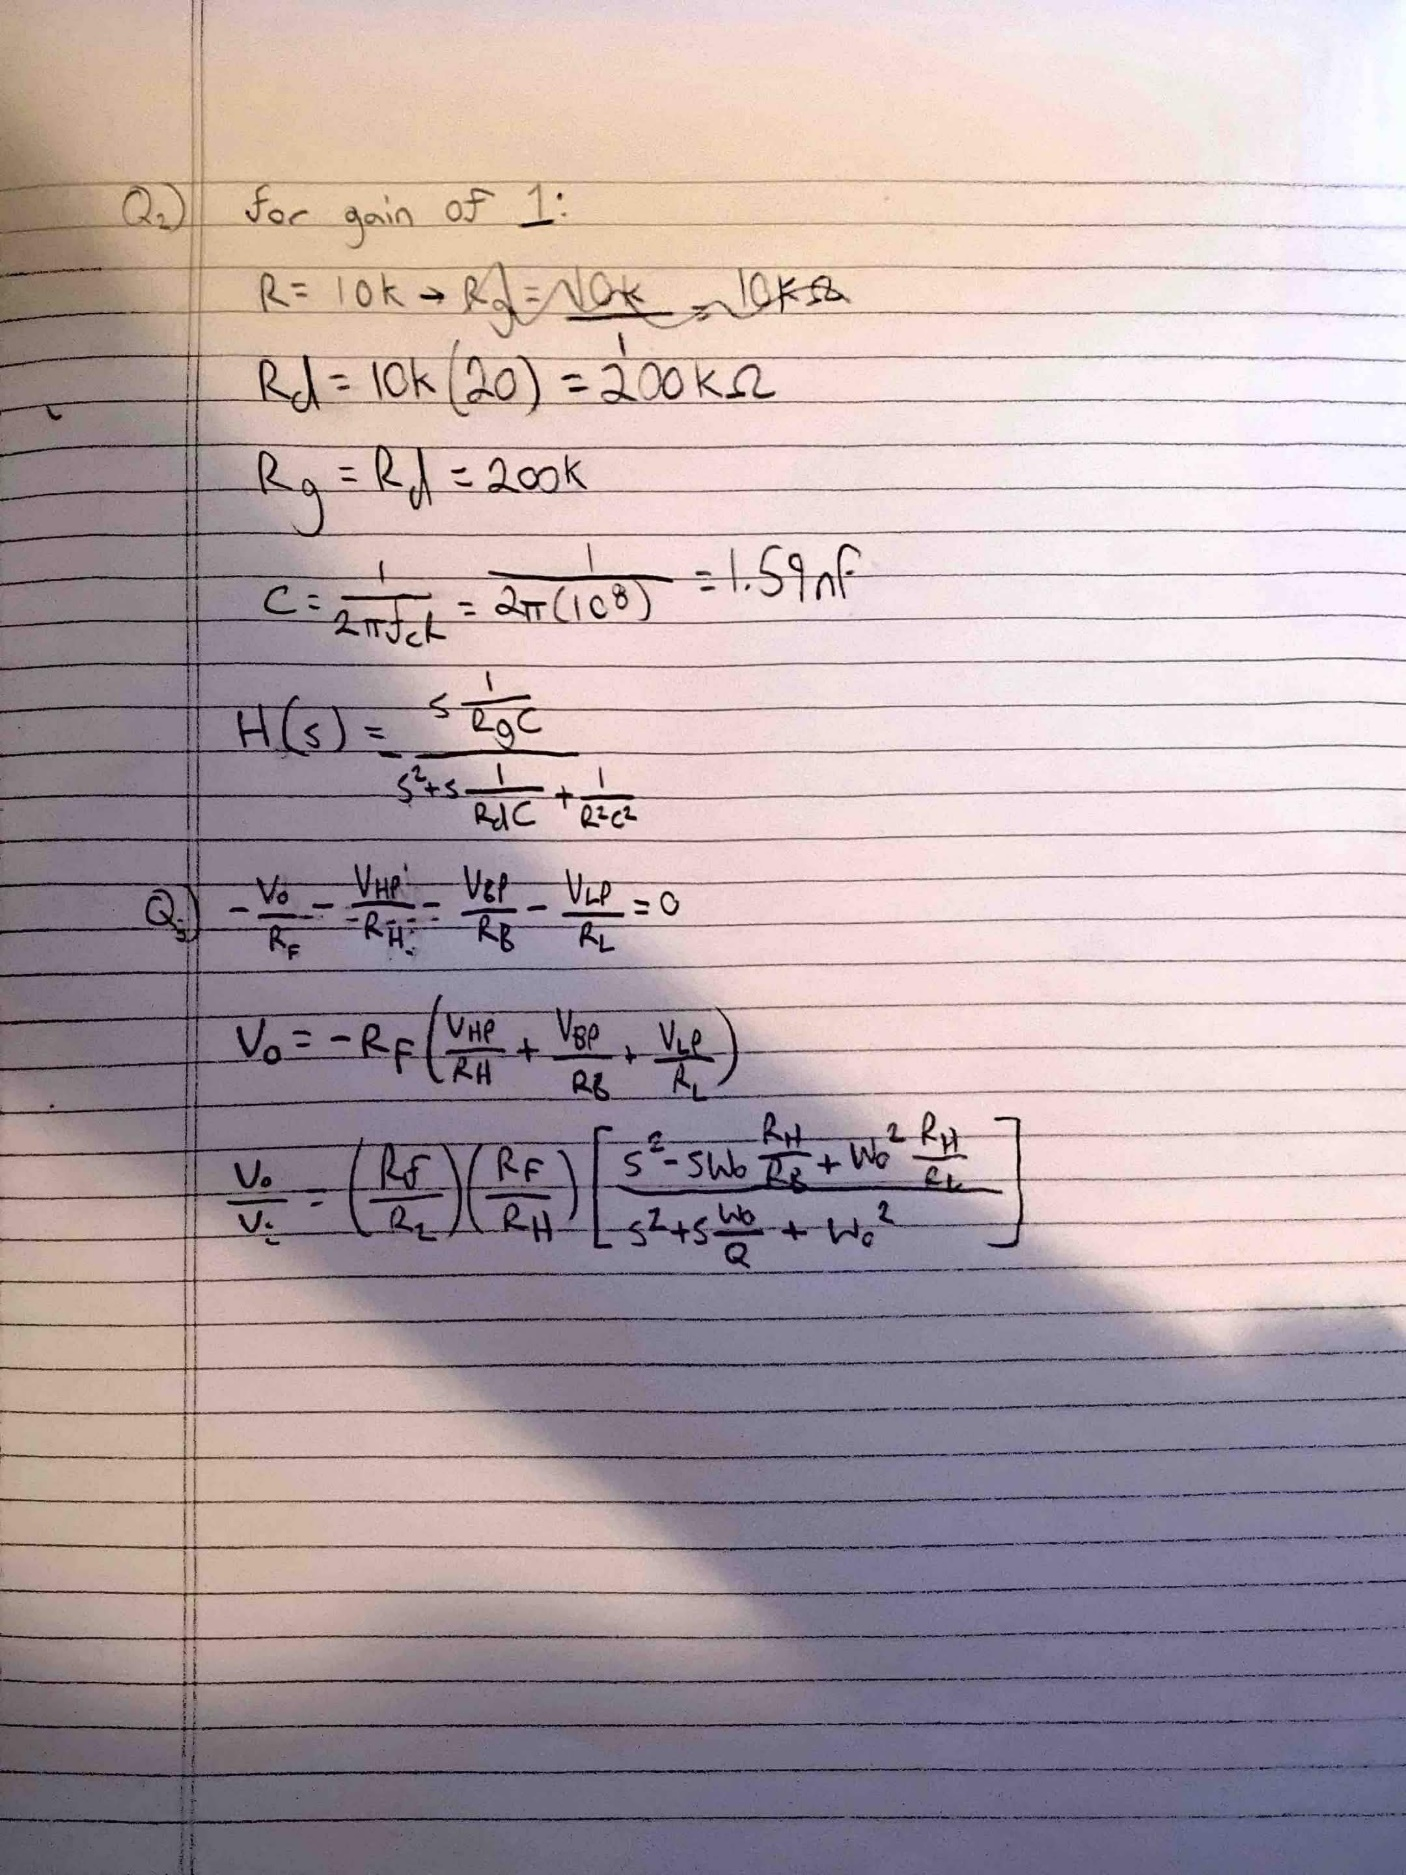 Q2) for gain of 1:
R = 10k → Rg = 10k/1 = 10kΩ
Rd = 10k(20) = 200kΩ
Rg = Rd = 200k
C = 1/(2πfcR) = 1/(2π(10^8)) = 1.59nF
H(s) = - (s 1/(RgC)) / (s² + s 1/(RdC) + 1/(R²C²))
Q3) - Vo/RF - VHP/RH - VBP/RB - VLP/RL = 0
Vo = -RF (VHP/RH + VBP/RB + VLP/RL)
Vo/Vi = (Rf/R2)(RF/RH) [(s² - sWo RH/RB + Wo² RH/RL) / (s² + s Wo/Q + Wo²)]